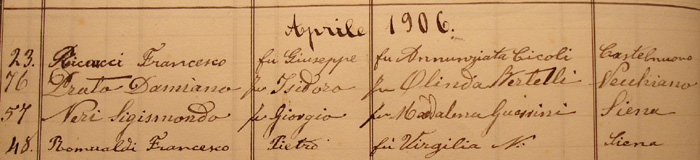 Aprile 1906.
23. Ricucci Francesco fu Giuseppe fu Annunziata Cicoli Castelnuovo
76 Prato Damiano fu Isidoro fu Olinda Vertelli Vecchiano
57 Neri Sigismondo fu Giorgio fu Maddalena Guerrini Siena
48. Romualdi Francesco Pietro fu Virgilia N. Siena